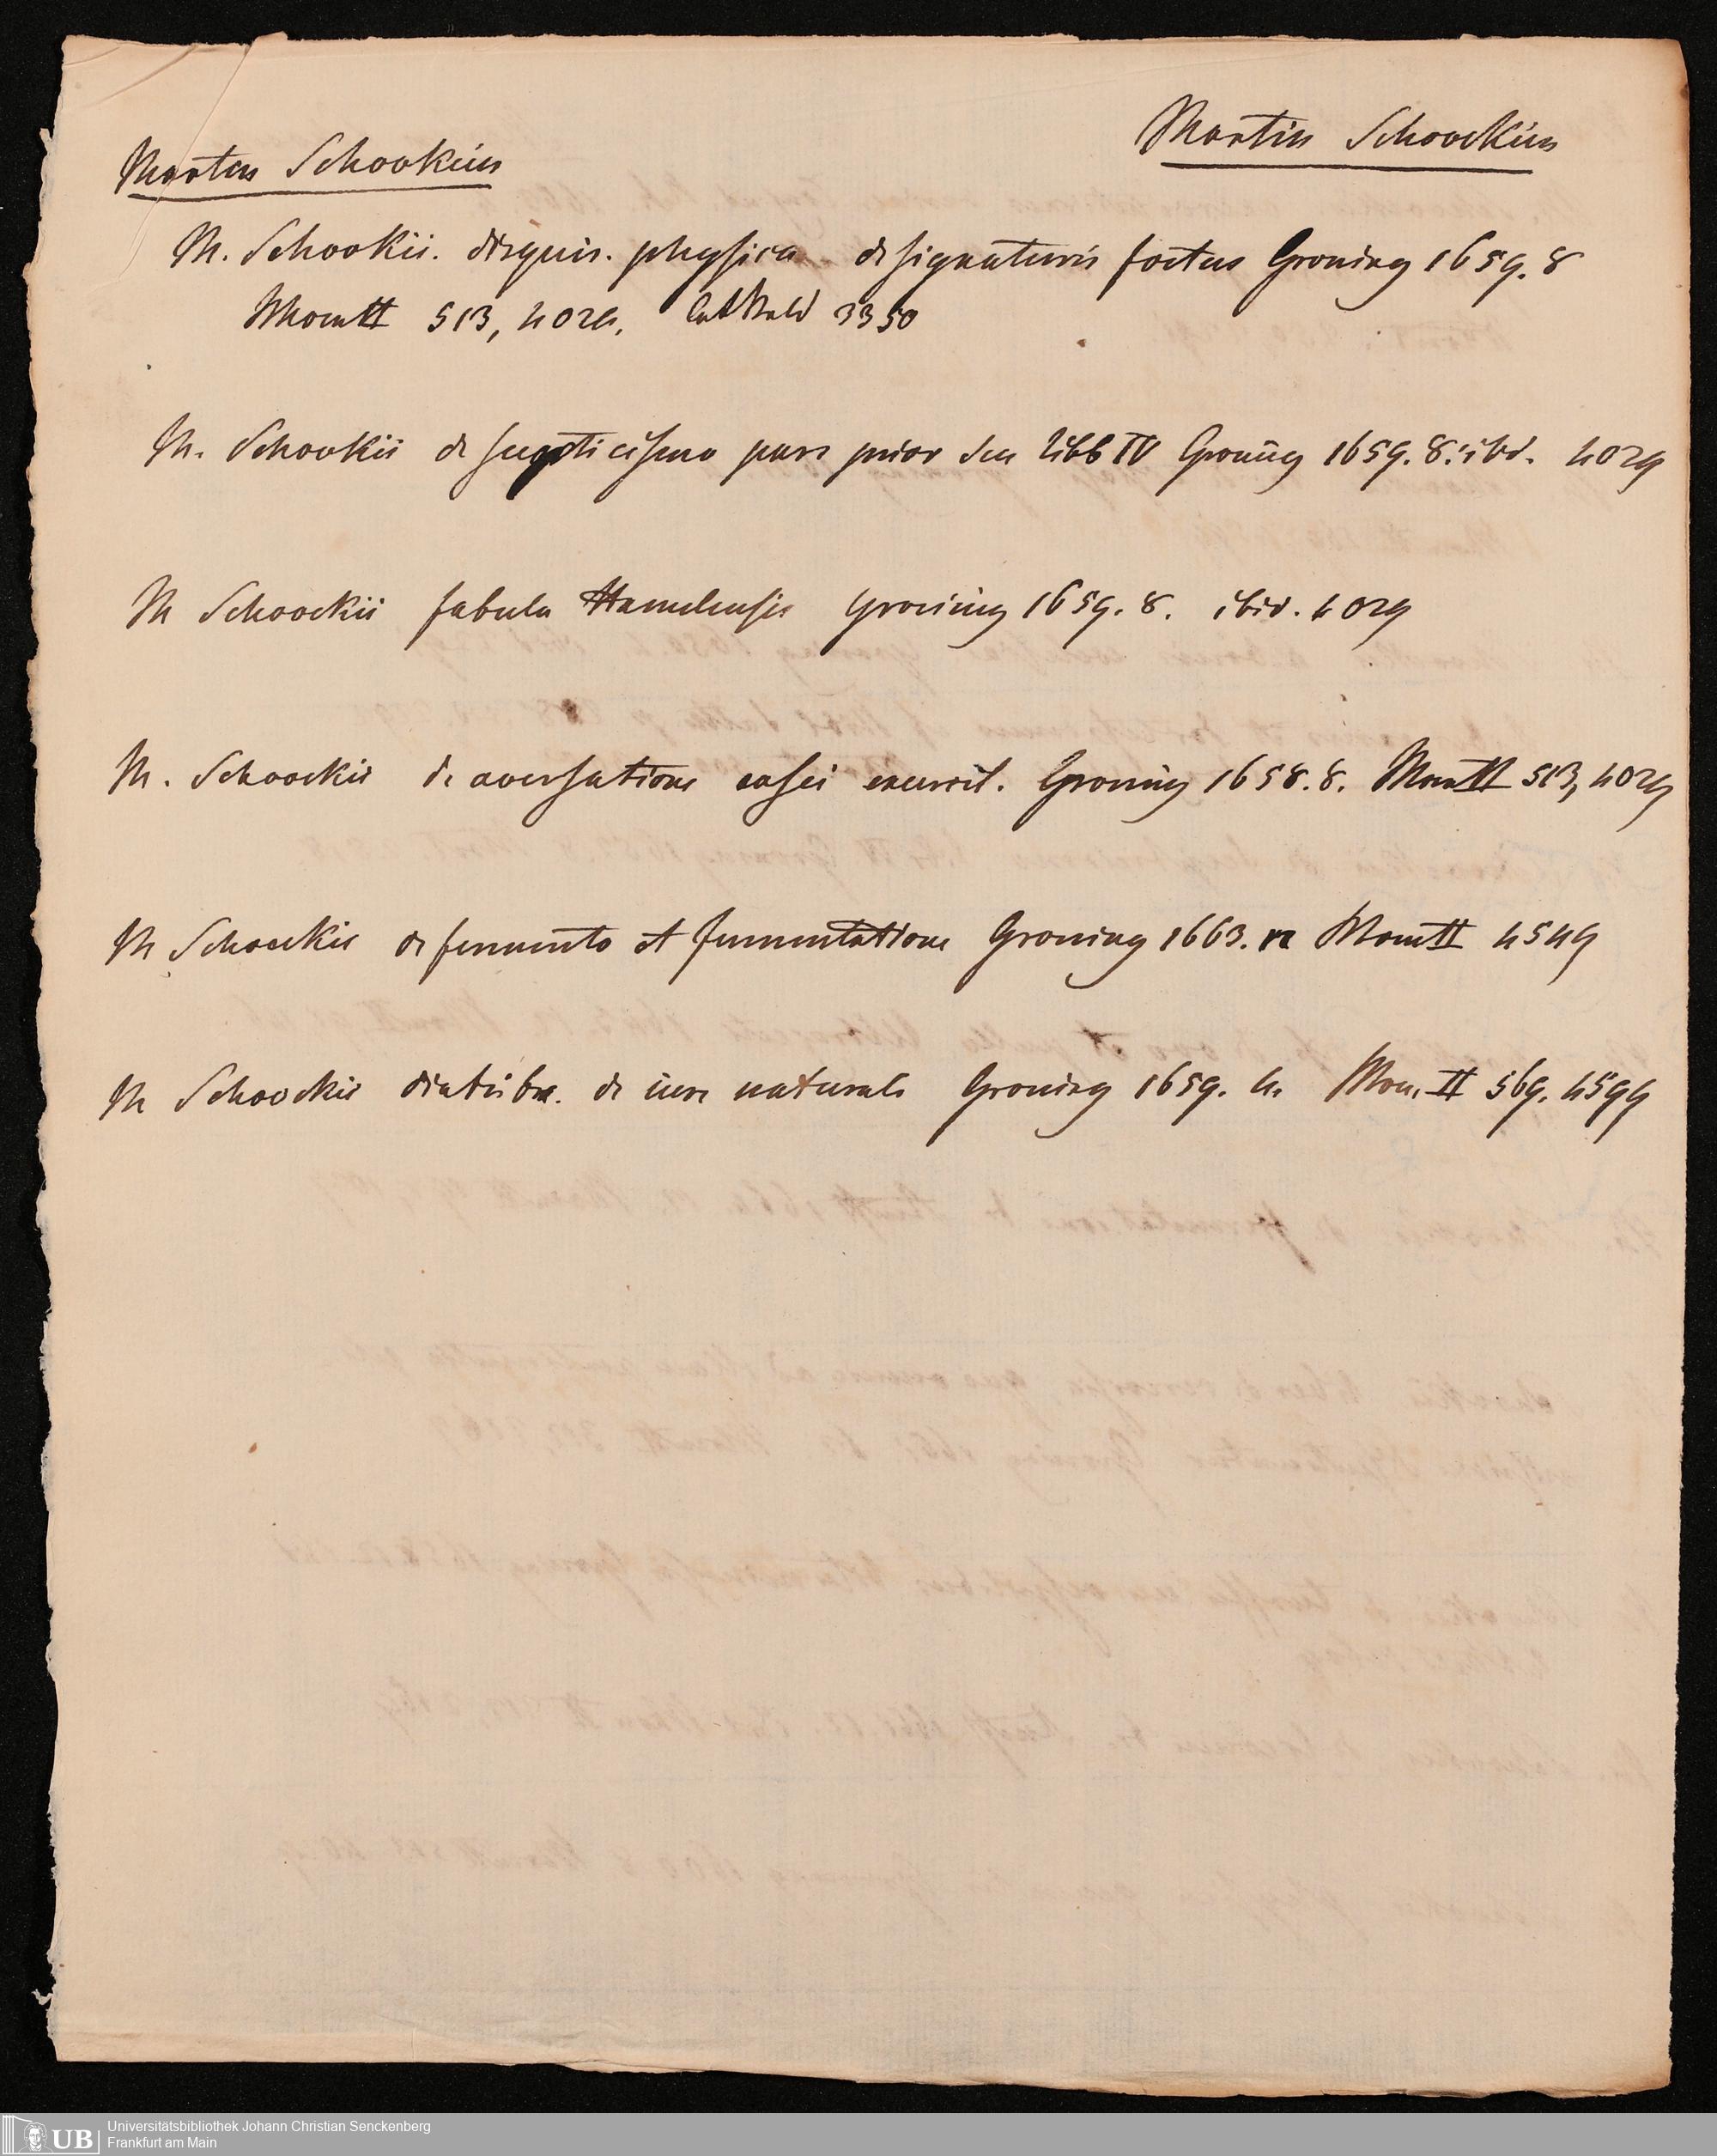 Martin Schoockius
Martin Schookius
M. Schookii. disquis. physica de signaturis foetus Groning 1659. 8
MomII 513, 4029. Cat 3350
M. Schookii de scepticismo pars prior seu libb IV Groning 1659. 8. ibid. 4029
M Schoockii fabula Hamelensis Groning 1659. 8. ibid. 4029
M. Schoockii de aversatione casei exercit. Groning 1658. 8. MomII 513, 4029
M Schoockii de fermento et fermentatione Groning 1663. 12 MomII 4549
M Schoockii diatriba. de iure naturali Groning 1659. 4. Mom. II 569. 4599
Universitätsbibliothek Johann Christian Senckenberg
Frankfurt am Main
UB